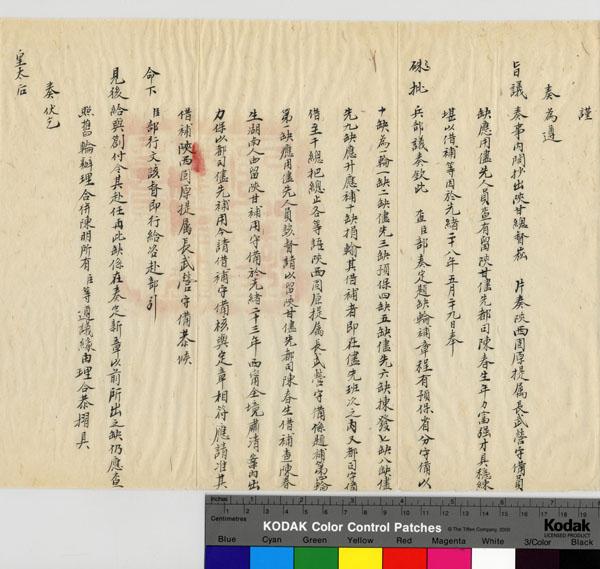 謹
奏為遵
旨議奏事內閣抄出陝甘總督崧 片奏陝西固原提屬長武營守備員
缺應用儘先人員查有留陝甘儘先都司陳春生年力富强才具穩練
堪以借補等因於光緒二十八年五月二十九日奉
硃批兵部議奏欽此 查臣部奏定題缺輪補章程有預保省分守備以
十缺為一輪一缺二缺儘先三缺預保四缺五缺儘先六缺揀發七缺八缺儘
先九缺應升應補十缺捐輸其借補者即在儘先班次之內又都司守備
借至千總把總止各等語陝西固原提屬長武營守備係題補第 輪
第一缺應用儘先人員該督請以留陝甘儘先都司陳春生借補查陳春
生湖南人由留陝甘補用守備於光緒二十三年 西甯全境肅清案內出
力保以都司儘先補用今請借補守備核與定章相符應請准其
借補陝西固原提屬長武營守備恭候
命下 臣部行文該督即行給咨赴部引
見後給與劄付令其赴任再此缺係在奏定新章以前所出之缺仍應查
照舊輪辦理合併陳明所有臣等遵議緣由理合恭摺具
奏伏乞
皇太后
inches
Centimetres
KODAK Color Control Patches
© The Tiffen Company, 2000
Kodak
LICENSED PRODUCT
Blue Cyan Green Yellow Red Magenta White 3/Color Black